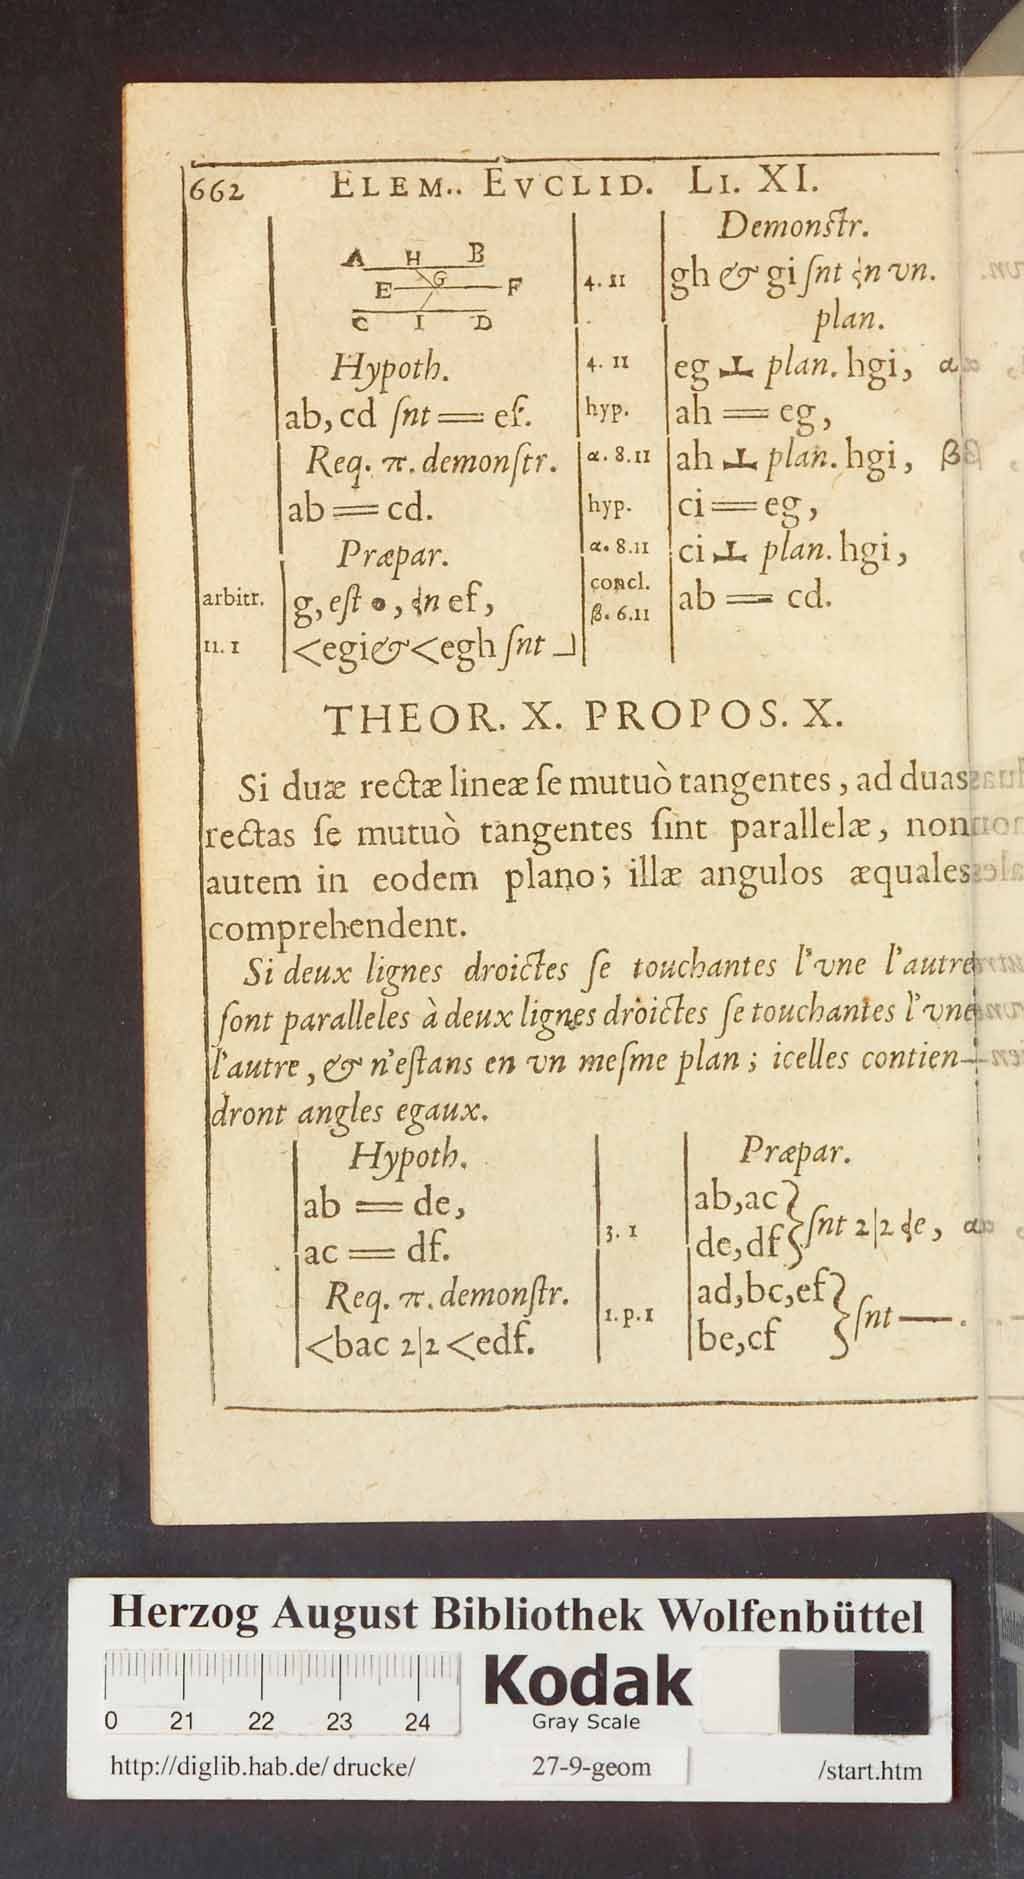 662 ELEM.. EVCLID. LI. XI.
A H B
E G F
C I D
Hypoth.
ab, cd ſnt = ef.
Req. π. demonſtr.
ab = cd.
Præpar.
arbitr. g, eſt •, in ef,
11. 1 <egi & <egh ſnt ⅃
Demonſtr.
4. 11 gh & gi ſnt in vn.
plan.
4. 11 eg ⊥ plan. hgi, α
hyp. ah = eg,
α. 8.11 ah ⊥ plan. hgi, β
hyp. ci = eg,
α. 8.11 ci ⊥ plan. hgi,
concl.
β. 6.11 ab = cd.
THEOR. X. PROPOS. X.
Si duæ rectæ lineæ ſe mutuò tangentes, ad duas
rectas ſe mutuò tangentes ſint parallelæ, non
autem in eodem plano; illæ angulos æquales
comprehendent.
Si deux lignes droictes ſe touchantes l'vne l'autre
ſont paralleles à deux lignes droictes ſe touchantes l'vne
l'autre, & n'eſtans en vn meſme plan; icelles contien-
dront angles egaux.
Hypoth.
ab = de,
ac = df.
Req. π. demonſtr.
<bac 2|2 <edf.
Præpar.
3. 1 ab,ac}
de,df} ſnt 2|2 de, α
1. p. 1 ad,bc,ef}
be,cf } ſnt —.
Herzog August Bibliothek Wolfenbüttel
0 21 22 23 24
Kodak
Gray Scale
http://diglib.hab.de/drucke/ 27-9-geom /start.htm